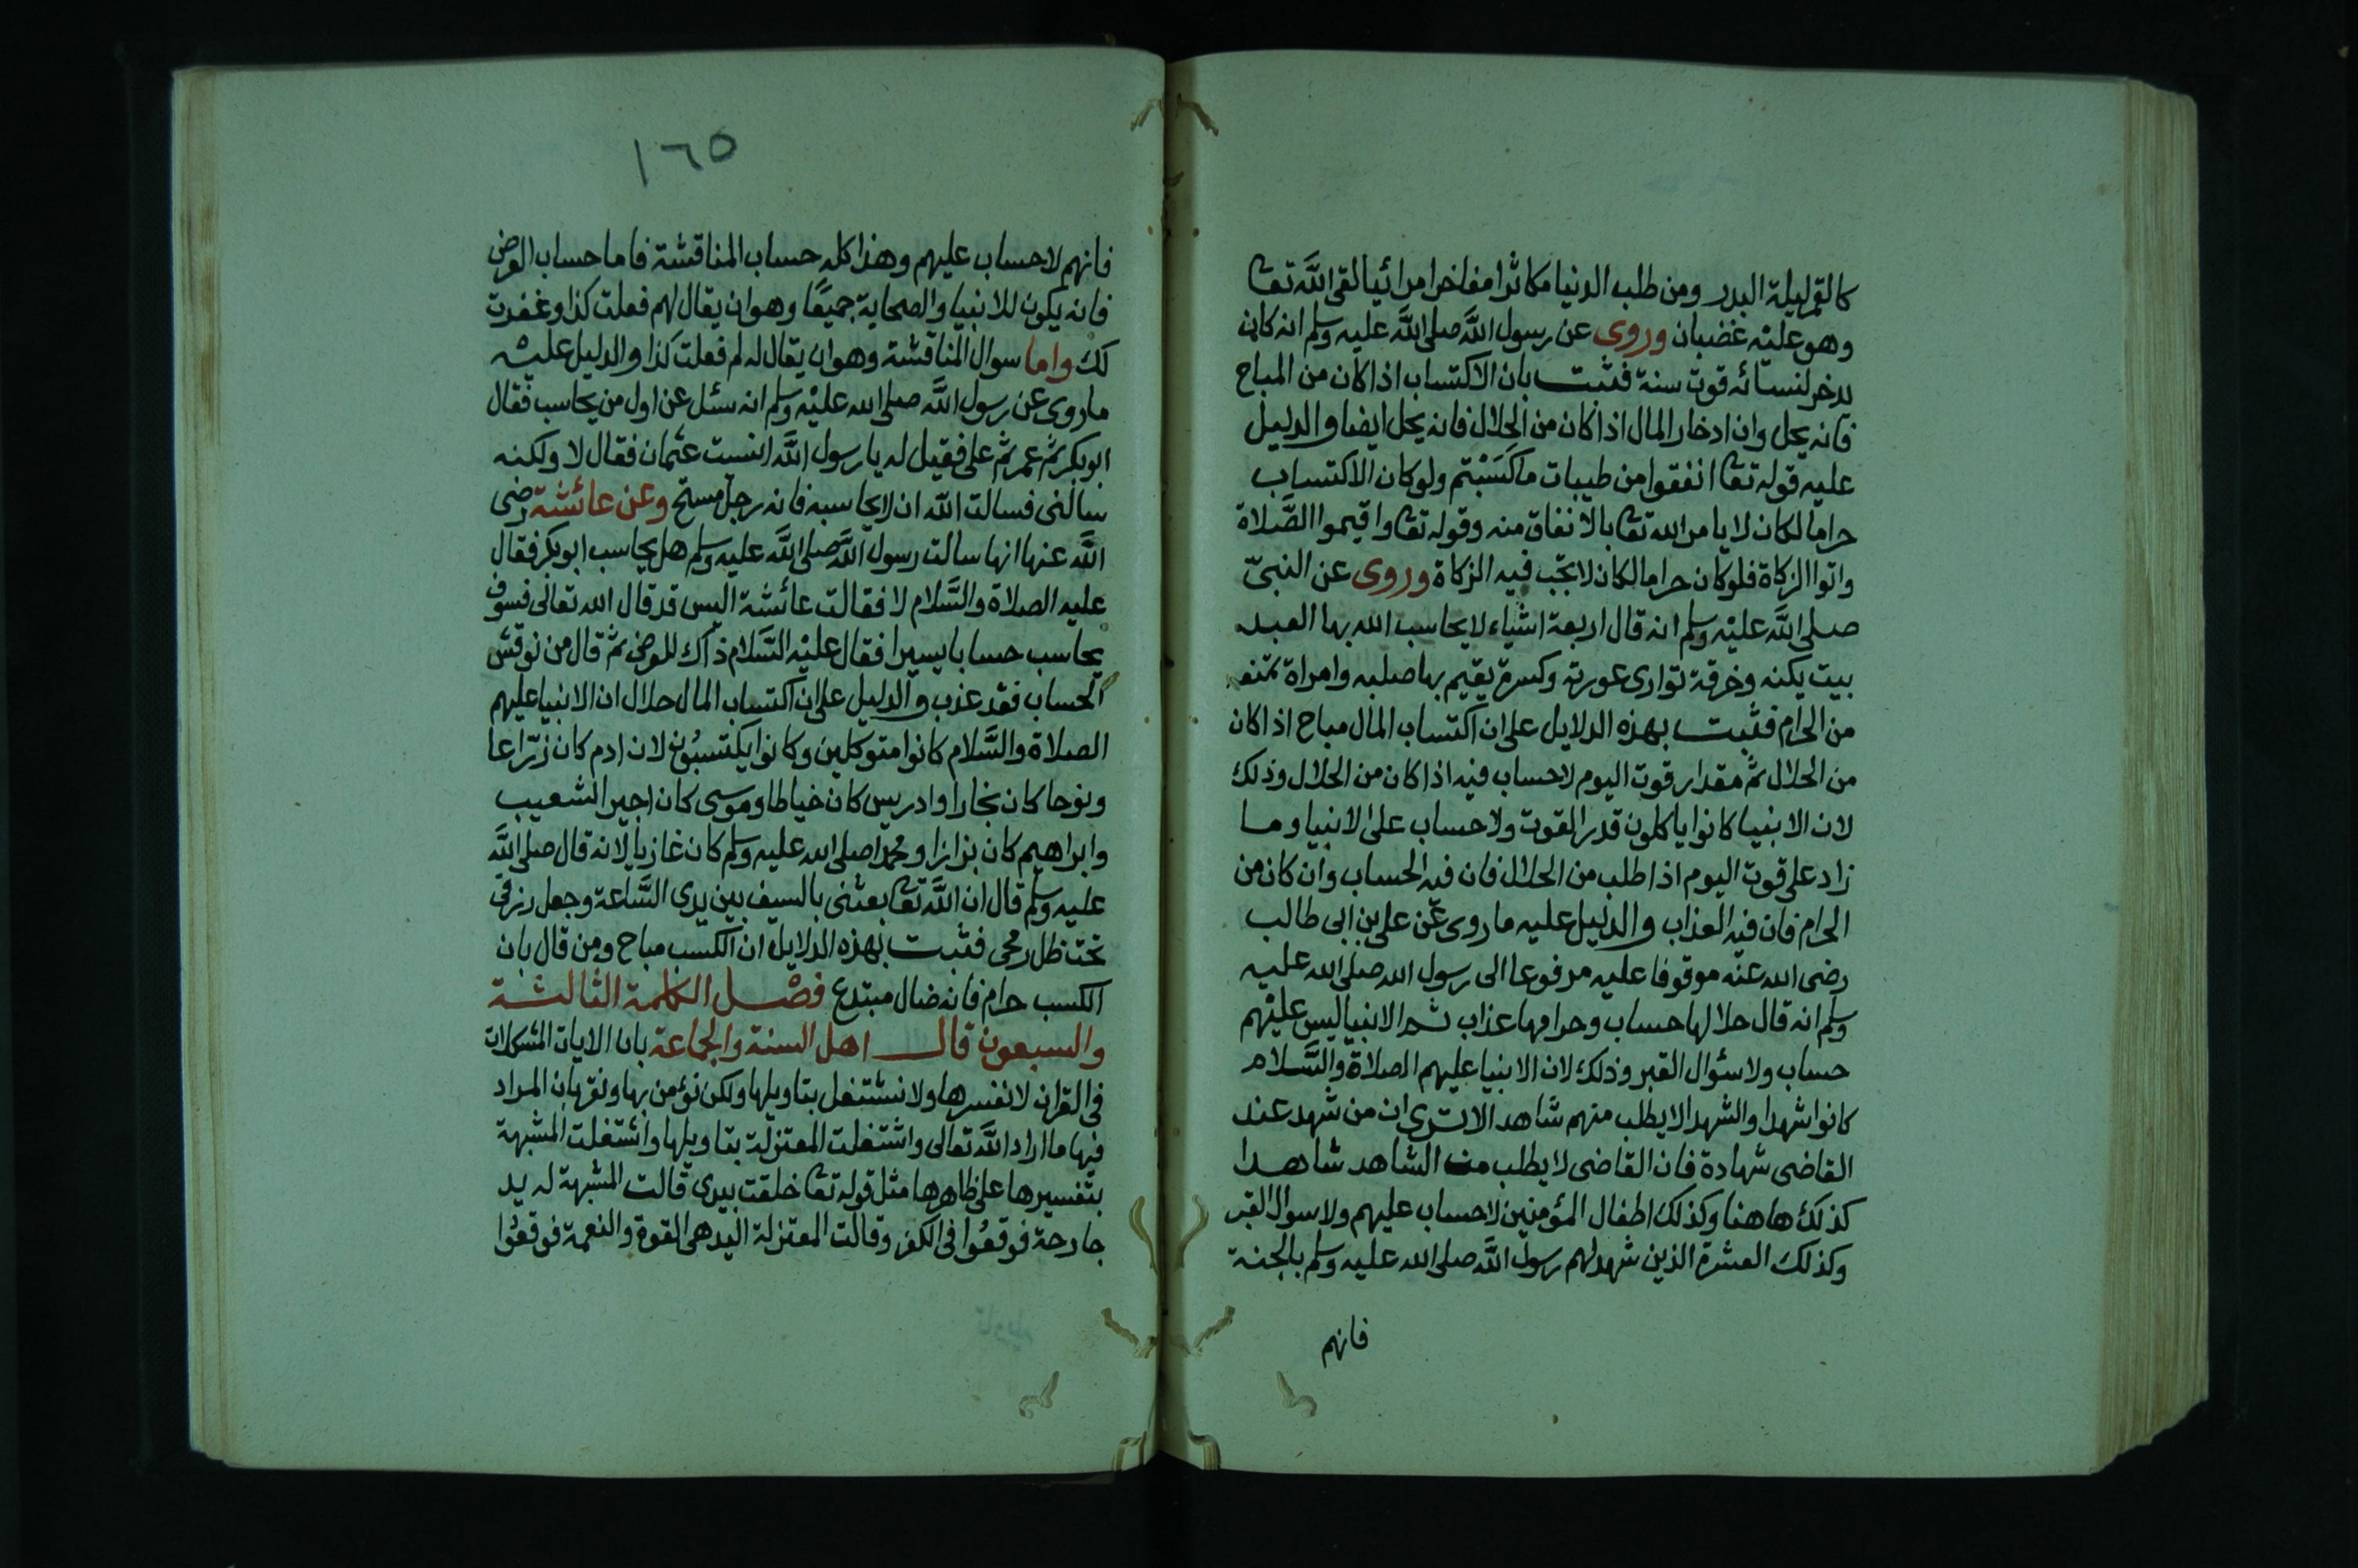 كالقمر ليلة البدر ومن طلب الدنيا مكاثرا مفاخرا مرائيا لقى اللَّه تعا
وهو عليْه غضبان وروى عن رسول اللَّه صلى اللَّه عليه وسلم انه كان
يدخر لنسائه قوت سنة فثبت بان الاكتساب اذا كان من المباح
فانه يحل وان ادخار المال اذا كان من الحلال فانه يحل ايضا والدليل
عليه قوله تعا انفقوا من طيبات ما كَسَبْتم ولو كان الاكتساب
حراما لكان لا يامر الله تعا بالانفاق منه وقوله تعا واقيموا الصَّلاة
واتوا الزكاة فلو كان حراما لكان لا تجب فيه الزكاة وروى عن النبىّ
صلى اللَّه عليْه وسلم انه قال اربعة اشياء لا يحاسب الله بها العبد
بيت يكنه وخرقة توارى عورته وكسرة يقيم بها صلبه وامراة تمنعه
من الحرام فثبت بهذه الدلايل على ان اكتساب المال مباح اذا كان
من الحلال ثم مقدار قوت اليوم لا حساب فيه اذا كان من الحلال وذلك
لان الانبيا كانوا ياكلون قدر القوت ولا حساب على الانبيا وما
زاد على قوت اليوم اذا طلب من الحلال فان فيه الحساب وان كان من
الحرام فان فيه العذاب والدليل عليه ما روى عن على بن ابى طالب
رضى الله عنه موقوفا عليه مرفوعا الى رسول الله صلى الله عليه
وسلم انه قال حلالها حساب وحرامها عذاب ثم الانبيا ليس عليْهم
حساب ولا سئوال القبر وذلك لان الانبيا عليهم الصلاة والسَّلام
كانوا شهدا والشهدا لا يطلب منهم شاهد الا ترى ان من شهد عند
القاضى شهادة فان القاضى لا يطلب من الشاهد شاهدا
كذلك هاهنا وكذلك اطفال المؤمنين لا حساب عليهم ولا سوال القبر
وكذلك العشرة الذين شهد لهم رسول اللَّه صلى الله عليه وسلم بالجنة
فانهم
١٦٥
فانهم لا حساب عليهم وهذا كله حساب المناقشة فاما حساب العرض
فانه يكون للانبيا والصحابة جميعًا وهو ان يقال لهم فعلت كذا وغفرت
لك واما سوال المناقشة وهو ان يقال له لم فعلت كذا والدليل عليْه
ما روى عن رسول اللَّه صلى الله عليْه وسلم انه سئل عن اول من يحاسب فقال
ابو بكر ثم عمر ثم على فقيل له يا رسول اللَّه انسيت عثمان فقال لا ولكنه
سالنى فسالت الله ان لا يحاسبه فانه رجل مستح وعن عائشة رضى
اللَّه عنها انها سالت رسول اللَّه صلى اللَّه عليه وسلم هل يحاسب ابو بكر فقال
عليه الصلاة والسَّلام لا فقالت عائشة اليس قد قال الله تعالى فسوف
يحاسب حسابا يسيرا فقال عليْه السَّلام ذاك للعرض ثم قال من نوقش
الحساب فقد عذب والدليل على ان اكتساب المال حلال ان الانبيا عليهم
الصلاة والسَّلام كانوا متوكلين وكانوا يكتسبُون لان ادم كان زرّاعا
ونوحا كان نجارا وادريس كان خياطا وموسى كان اجيرا لشعيب
وابراهيم كان بزازا ومحمدا صلى الله عليه وسلم كان غازيا لانه قال صلى اللَّه
عليه وسلم قال ان اللَّه تعا بعثنى بالسيف بين يدى السَّاعة وجعل رزقى
تحت ظل رمحى فثبت بهذه الدلايل ان الكسب مباح ومن قال بان
الكسب حرام فانه ضال مبتدع فصْل الكلمة الثالثة
والسبعون قال اهل السنة والجماعة بان الايات المشكلات
فى القران لا نفسرها ولا نشتغل بتاويلها ولكن نؤمن بها ونقر بان المراد
فيها ما اراد اللَّه تعالى واشتغلت المعتزلة بتاويلها واشتغلت المشبهة
بتفسيرها على ظاهرها مثل قوله تعا خلقت بيدى قالت المشبهة له يد
جارحة فوقعُوا فى الكفر وقالت المعتزلة اليد هى القوة والنعمة فوقعُوا